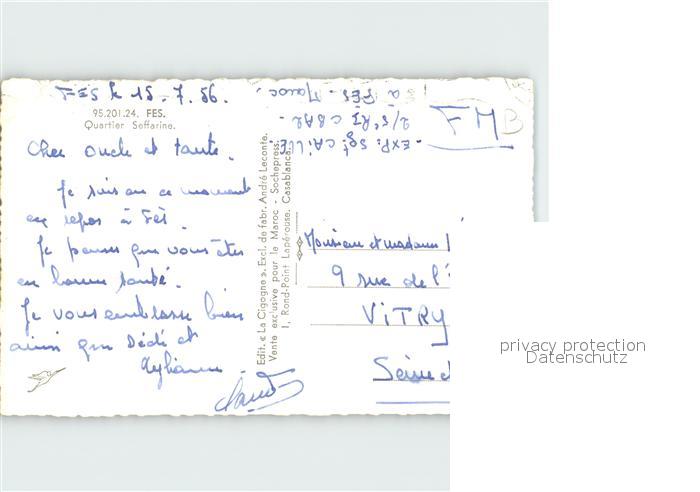 FES le 15.7.56.
95.201.24. FES.
Quartier Seffarine.
Cher oncle et tante.
Je suis en ce moment
en repos à Fès.
Je pense que vous êtes
en bonne santé.
Je vous embrasse bien
ainsi que Dédé et
Edit. « La Cigogne ». Excl. de fabr. André Leconte.
Vente exclusive pour le Maroc - Sochepress.
1, Rond-Point Lapérouse. Casablanca.
EXP: Sgt CAILLE
2/5e RI
à FES. Maroc.
FM
Monsieur et madame
9 rue de l'
VITRY
Seine
privacy protection
Datenschutz